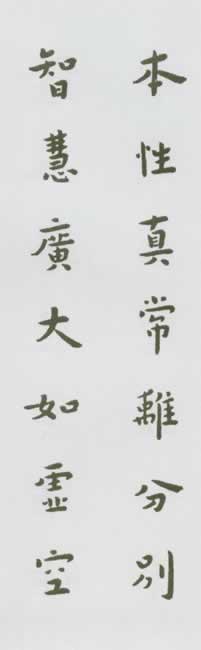 本性真常離分別
智慧廣大如虛空